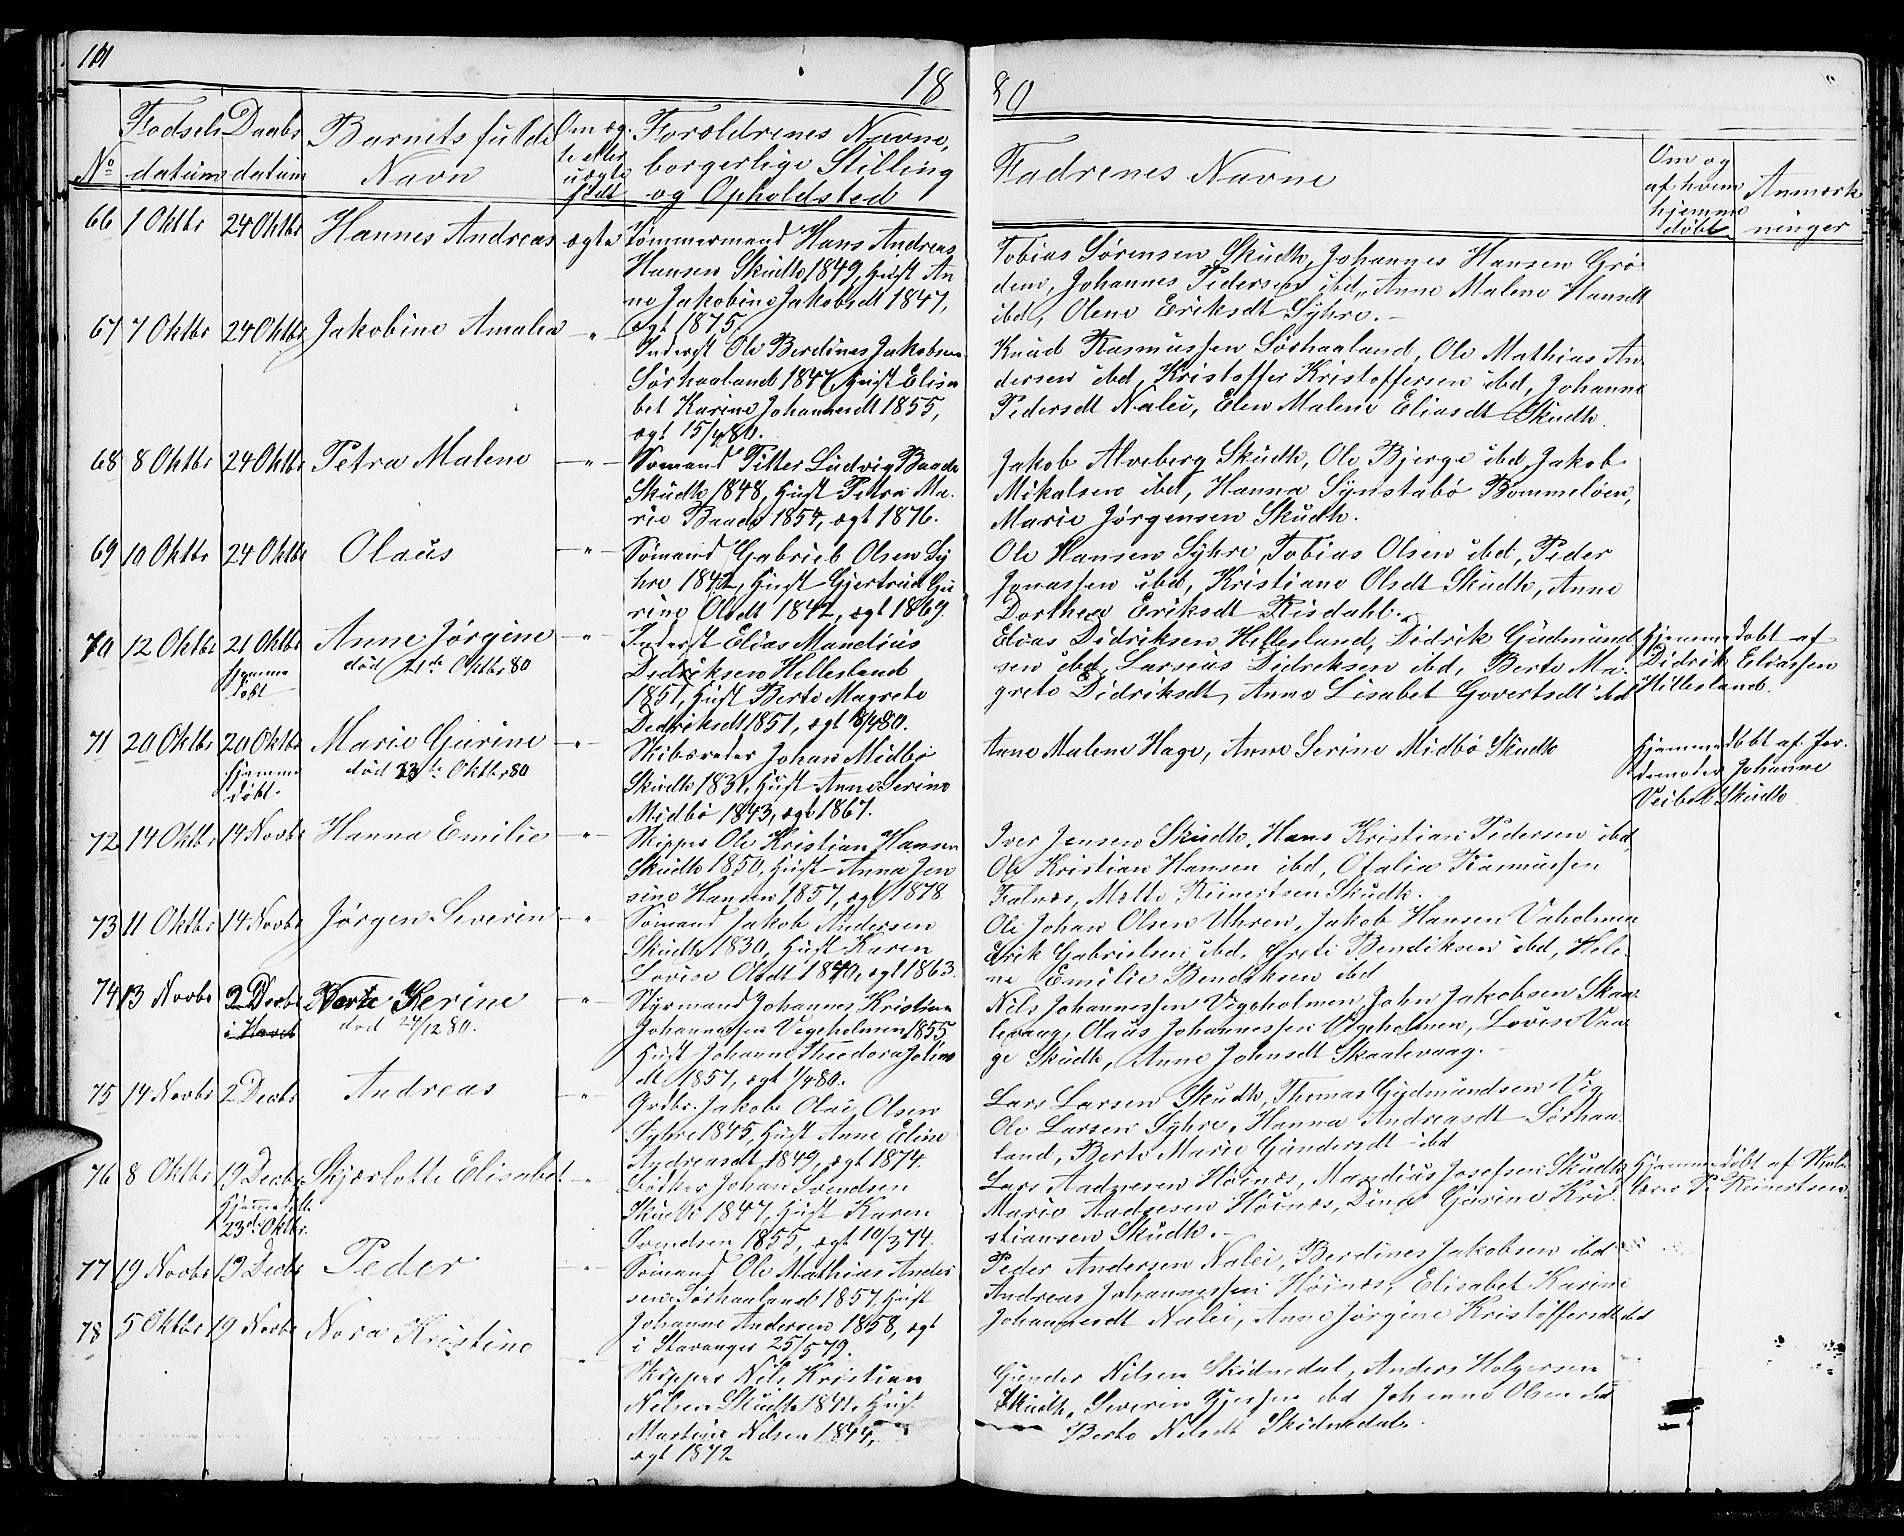 101
18
80
No
Fødsels
datum
Daabs
datum
Barnets fulde
Navn
Om æg-
te eller
uægte
født
Forældrenes Navne,
borgerlige Stilling
og Opholdsted
Fadrenes Navne
Om og
af hvem
hjemme
døbt
Anmærk
ninger
66 1 Oktbr 24 Oktbr Hannes Andreas ægte
Tømmermand Hans Andreas
Hansen Skudh 1849, Hust An
ne Jakobine Jakobsdt 1847,
ægt 1875.
Tobias Sørensen Skudh, Johannes Hansen Grø
dem, Johannes Pedersen ibd, Anne Malene Hansdt
ibd, Olene Eriksdt Syhre.
67 7 Oktbr 24 Oktbr Jakobine Amalia -"-
Inderst Ole Berdines Jakobsen
Sørhaaland 1847, Hust Elisa
bet Karine Johannesdt 1855,
ægt 15/4 80.
Knud Rasmussen Sørhaaland, Ole Mathias An
dersen ibd, Kristoffer Kristoffersen ibd, Johanne
Pedersdt Nalei, Elen Malene Eliasdt Skudh.
68 8 Oktbr 24 Oktbr Petra Malene -"-
Sømand Pitter Ludvig Baade
Skudh 1848, Hust Petra Ma-
rie Baade 1854, ægt 1876.
Jakob Alveberg Skudh, Ole Bjerge ibd, Jakob
Mikalsen ibd, Hanna Synstabø Bommeløen,
Marie Jørgensen Skudh.
69 10 Oktbr 24 Oktbr Olaus -"-
Sømand Gabriel Olsen Sy
hre 1842, Hust Gjertrud Gu
rine Olsdt 1842, ægt 1869.
Ole Hansen Syhre, Tobias Olsen ibd, Peder
Jonassen ibd, Kristiane Olsdt Skudh, Anne
Dorthea Eriksdt Risdahl.
70 12 Oktbr 21 Oktbr Anne Jørgine -"-
hjemme
døbt
død 21de Oktbr 80
Inderst Elias Mandius
Didriksen Hellesland
1851, Hust Berte Magrete
Dedriksdt 1851, ægt 8/4 80.
Elias Didriksen Hellesland, Didrik Gudmund
sen ibd, Larseus Didreksen ibd, Berte Ma-
grete Didriksdt, Anne Lisabet Govertsdt ibd
Hjemmedøbt af
Didrik Eliassen
Hillesland.
71 20 Oktbr 20 Oktbr Marie Gurine -"-
hjemme
døbt
død 23de Oktbr 80
Skibsreder Johan Midbø
Skudh 1831, Hust Anne Serine
Midbø 1843, ægt 1867.
Anne Malene Hage, Anne Serine Midbø Skudh
Hjemmedøbt af Jor-
demoder Johanne
Veibet Skudh
72 14 Oktbr 14 Novbr Hanna Emilie -"-
Skipper Ole Kristian Hansen
Skudh 1850, Hust Anna Jen
sine Hansen 1857, ægt 1878
Iver Jensen Skudh, Hans Kristian Pedersen ibd,
Ole Kristian Hansen ibd, Otalia Rasmussen
Falnæs, Mette Reinertsen Skudh.
73 11 Oktbr 14 Novbr Jørgen Severin -"-
Sømand Jakob Andersen
Skudh 1830, Hust Karen
Lovise Olsdt 1840, ægt 1863.
Ole Johan Olsen Uhren, Jakob Hansen Vaholmen
Erik Gabrielsen ibd, Greti Bendiksen ibd, Hele-
ne Emilie Bendiksen ibd
74 13 Novbr 2 Decbr Serine -"-
død 27/12 80.
Styrmand Johannes Kristian
Johannessen Vigeholmen 1855
Hust Johanne Theodora Johns
dt 1857, ægt 1/4 80.
Nils Johannessen Vigeholmen, John Jakobsen Skaa-
levaag, Olaus Johannessen Vigeholmen, Lovise Vaa
ge Skudh, Anne Johnsdt Skaalevaag.
75 14 Novbr 2 Decbr Andreas -"-
Grdbr. Jakob Olai Olsen
Syhre 1845, Hust Anne Eline
Andreasdt 1849, ægt 1874.
Lars Larsen Skudh, Thomas Gudmundsen Vig
Ole Larsen Syhre, Hanna Andreasdt Sørhaa-
land, Berte Marie Gundersdt ibd
76 8 Oktbr 19 Decbr Skjærlotte Elisabet -"-
23de Oktbr.
Johan Svendsen
Skudh 1847, Hust Karen
Svendsen 1855, ægt 10/3 74.
Lars Aadnesen Høinæs, Mandius Josefsen Skudh
Marie Aadnesen Høinæs, Dina Gurine Kri-
stiansen Skudh.
Hjemmedøbt af Skole
lærer P. Reinertsen
77 19 Novbr 19 Decbr Peder -"-
Sømand Ole Mathias Ander
sen Sørhaaland 1857, Hust
Johanne Andersen 1858, ægt
i Stavanger 25/5 79.
Peder Andersen Nalei, Berdines Jakobsen ibd
Andreas Johannessen Høinæs, Elisabet Karine
Johannesdt Nalei, Anne Jørgine Kristoffersdt ibd
78 5 Oktbr 19 Novbr Nora Kristine -"-
Skipper Nils Kristian
Nilsen Skudh 1841, Hust
Martine Nilsen 1844,
ægt 1872
Gunder Nilsen Skidnedal, Anders Holgersen
Skudh, Severin Gjessen ibd Johanne Olsen ibd
Berte Nilsdt Skidnedal.